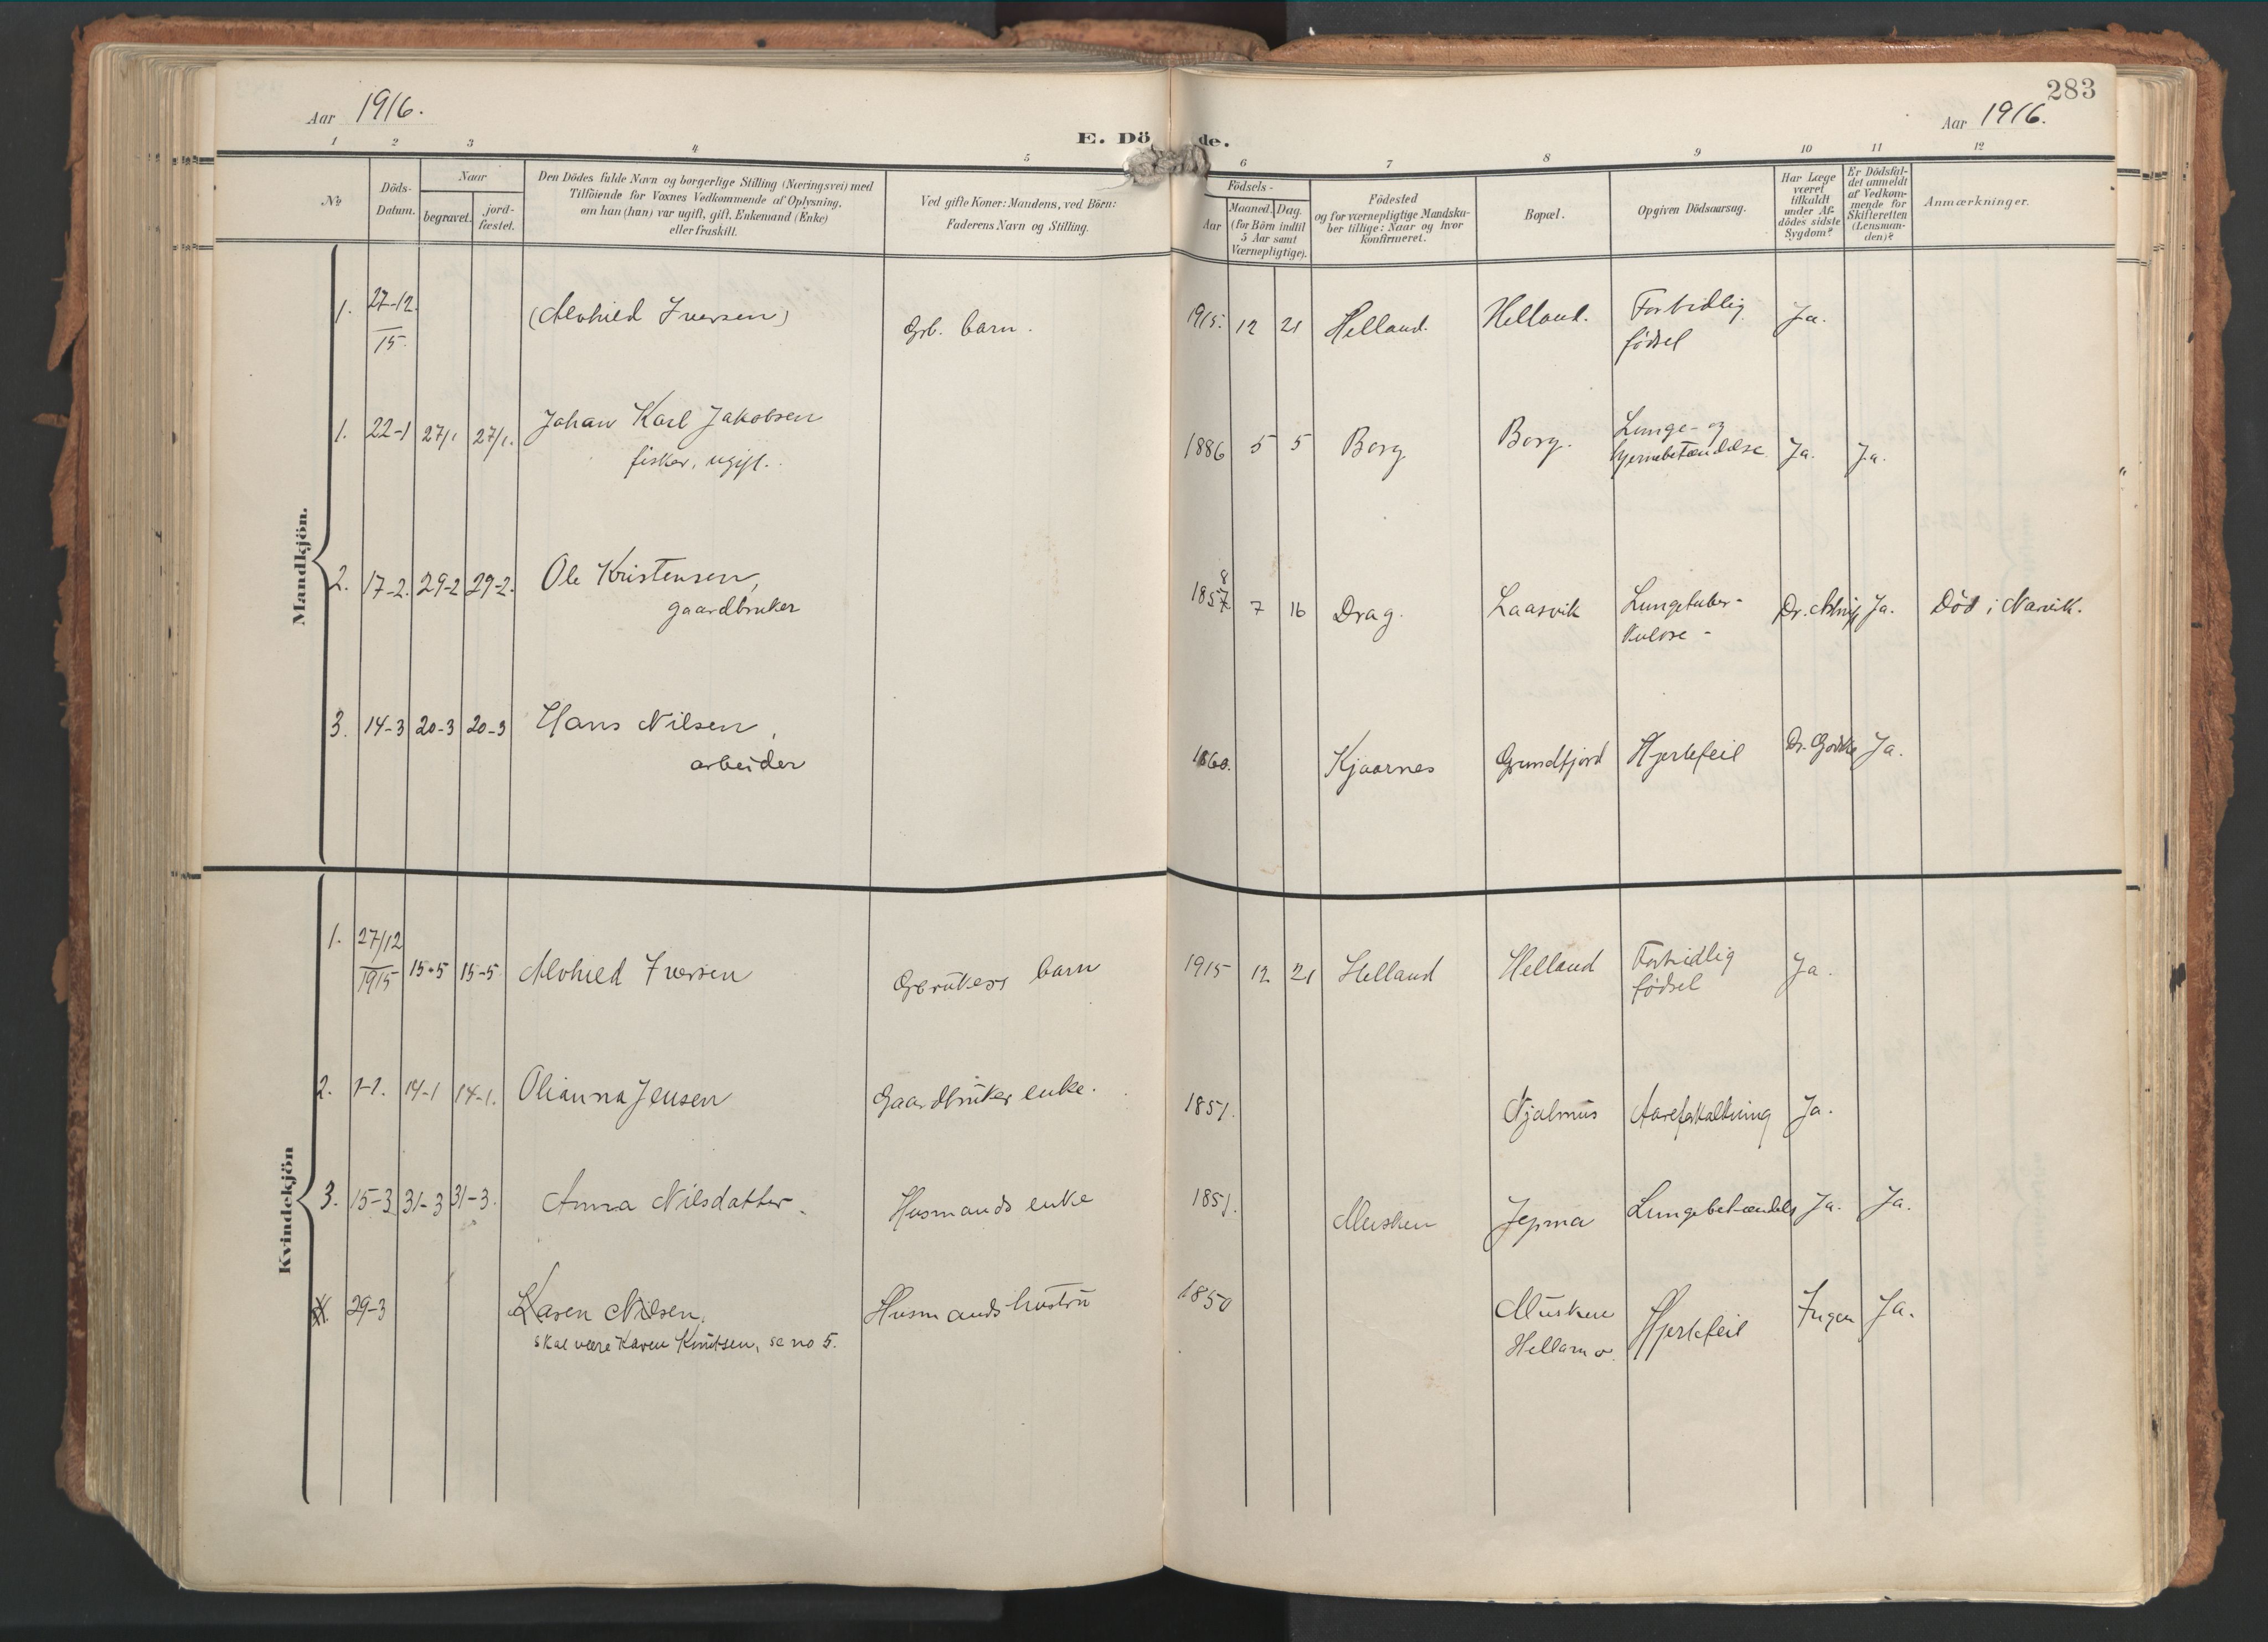 283
Aar 1916.
Aar 1916.
E. Dö de.
1 2 3 4 5 6 7 8 9 10 11 12
No
Döds-
Datum.
Naar
begravet.
jord-
fæstet.
Den Dödes fulde Navn og borgerlige Stilling (Næringsvei) med
Tilföiende for Voxnes Vedkommende af Oplysning,
om han (hun) var ugift, gift, Enkemand (Enke)
eller fraskilt.
Ved gifte Koner: Mandens, ved Börn:
Faderens Navn og Stilling.
Födsels-
Aar
Maaned. Dag.
(for Börn indtil
5 Aar samt
Værnepligtige).
Födested
og for værnepligtige Mandska-
ber tillige: Naar og hvor
konfirmeret.
Bopæl.
Opgiven Dödsaarsag.
Har Læge
været
tilkaldt
under Af-
dödes sidste
Sygdom?
Er Dödsfal-
det anmeldt
af Vedkom-
mende for
Skifteretten
(Lensman-
den)?
Anmærkninger.
Mandkjön.
1. 27-12 (Alvhild Iversen) Grb. barn. 1915. 12 21 Helland. Helland. Fortidlig Ja.
15. födsel
1. 22-1 27/1 27/1. Johan Karl Jakobsen 1886 5 5 Borg Borg. Lunge- og Ja. Ja.
fisker, ugift. hjernebetændelse
8
2. 17-2. 29-2 29-2. Ole Kristensen, 1857 7 16 Drag. Laasvik Lungetuber- Dr. Ja. Död i Narvik.
gaardbruker kulose -
3. 14-3 20-3 20-3 Hans Nilsen, 1860. Kjaarnes Grundfjord Hjertefeil Dr. Ja.
arbeider
Kvindekjön
1. 27/12 15-5 15-5. Alvhild Iversen Gbrukers barn 1915 12 21 Helland Helland Fortidlig Ja.
1915 födsel
2. 1-1. 14-1 14-1. Olianna Jensen Gaardbruker enke. 1851. Njalmus Aareforkalkning Ja.
3. 15-3 31-3 31-3. Anna Nilsdatter. Husmands enke 1851. Musken Jepma Lungebetændels Ja. Ja.
4. 29-3 Karen Nilsen, Husmands hustru 1850 Musken Hjertefeil Ingen Ja.
skal være Karen Knutsen, se no 5. Hellamo.